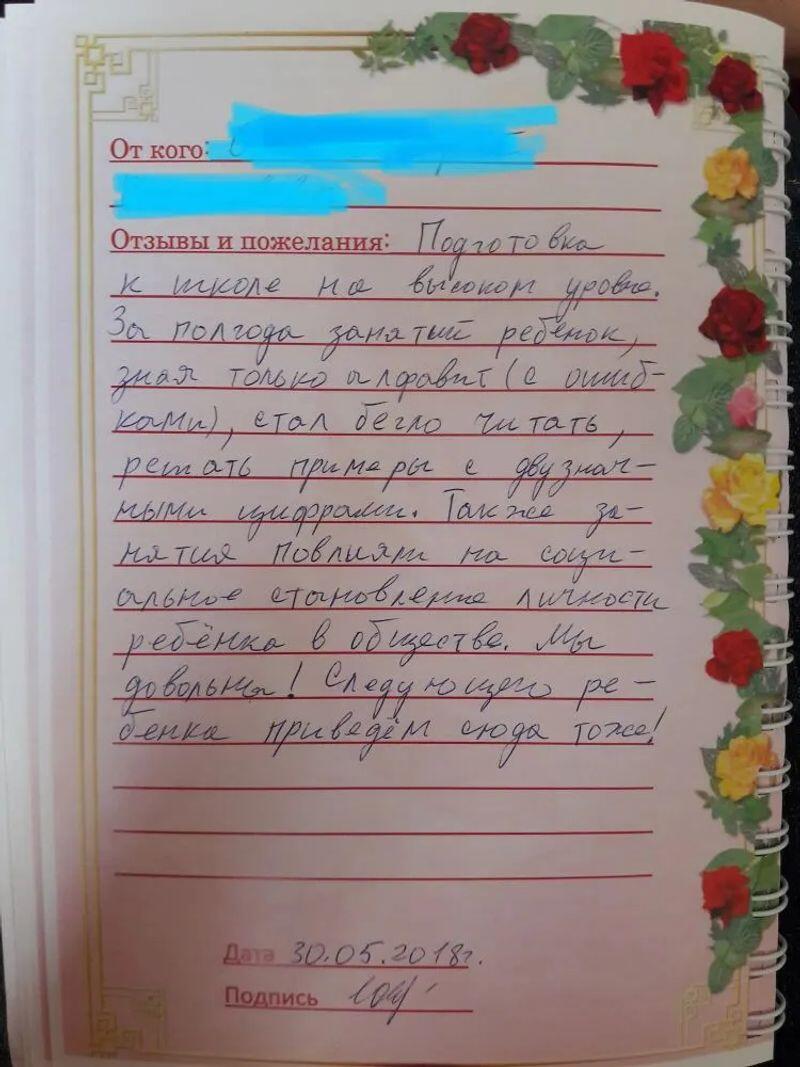 От кого:
Отзывы и пожелания: Подготовка
к школе на высоком уровне.
За полгода занятий ребёнок,
зная только алфавит (с ошиб-
ками), стал бегло читать,
решать примеры с двузнач-
ными цифрами. Также за-
нятия повлияли на соци-
альное становление личности
ребёнка в обществе. Мы
довольны! Следующего ре-
бенка приведём сюда тоже!
Дата 30.05.2018г.
Подпись